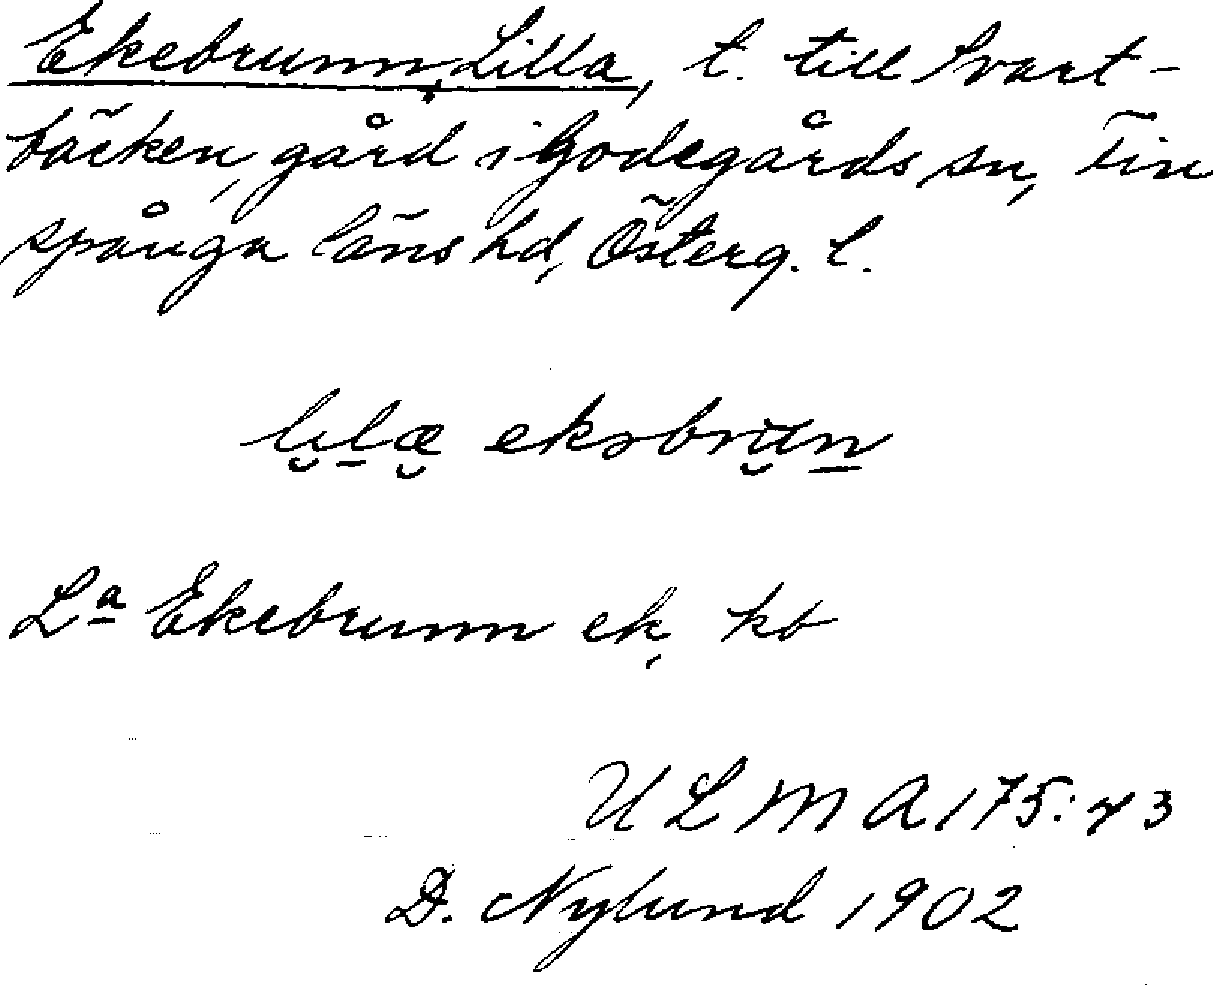 Ekebrunn, Lilla, t. till Svart-
bäcken, gård i Godegårds sn, Fin
spånga läns hd, Österg. l.
lilæ eksbrun
La Ekebrunn ek. kb
ULMA 175:43
D. Nylund 1902